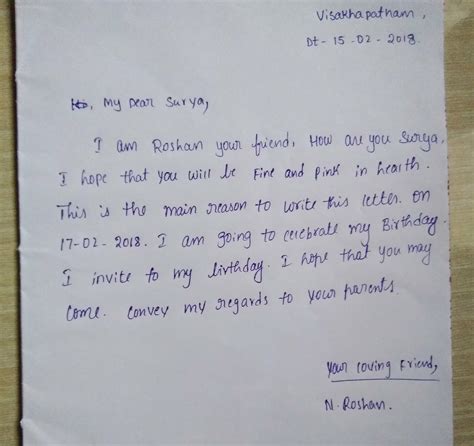 Visakhapatnam,
Dt- 15-02-2018.
My Dear Surya,
I am Roshan your friend, How are you Surya,
I hope that you will be Fine and Pink in health.
This is the main reason to write this letter. On
17-02-2018. I am going to celebrate my Birthday.
I invite to my birthday. I hope that you may
Come. Convey my regards to your parents.
Your loving Friend,
N. Roshan.